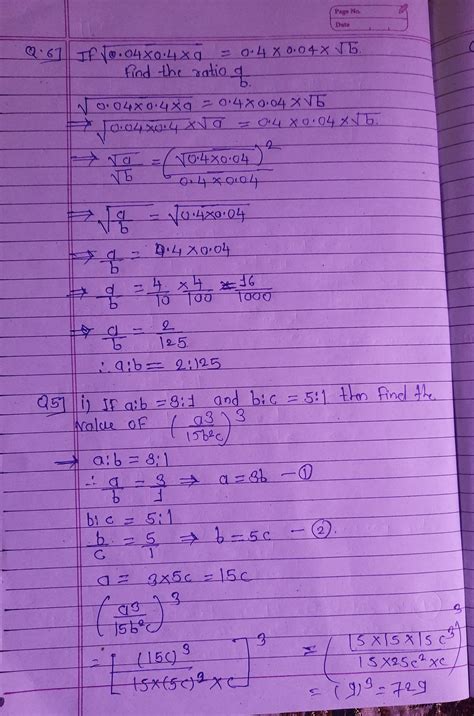 Page No.
Date
Q.6] If √0.04×0.4×a = 0.4×0.04×√b.
Find the ratio a/b.
√0.04×0.4×a = 0.4×0.04×√b
⇒ √0.04×0.4 × √a = 0.4×0.04×√b.
⇒ √a/√b = (√0.4×0.04)²/0.4×0.04
⇒ √a/b = √0.4×0.04
⇒ a/b = 0.4×0.04
⇒ a/b = 4/10 × 4/100 = 16/1000
⇒ a/b = 2/125
∴ a:b = 2:125
Q5] i) If a:b = 3:1 and b:c = 5:1 then find the
value of (a3/15b²c)³
→ a:b = 3:1
∴ a/b = 3/1 ⇒ a = 3b — ①
b:c = 5:1
b/c = 5/1 ⇒ b = 5c — ②.
a = 3×5c = 15c
(a3/15b²c)³
= [(15c)³/15×(5c)²×c]³ = (15×15×15c³/15×25c²×c)³
= (9)³ = 729